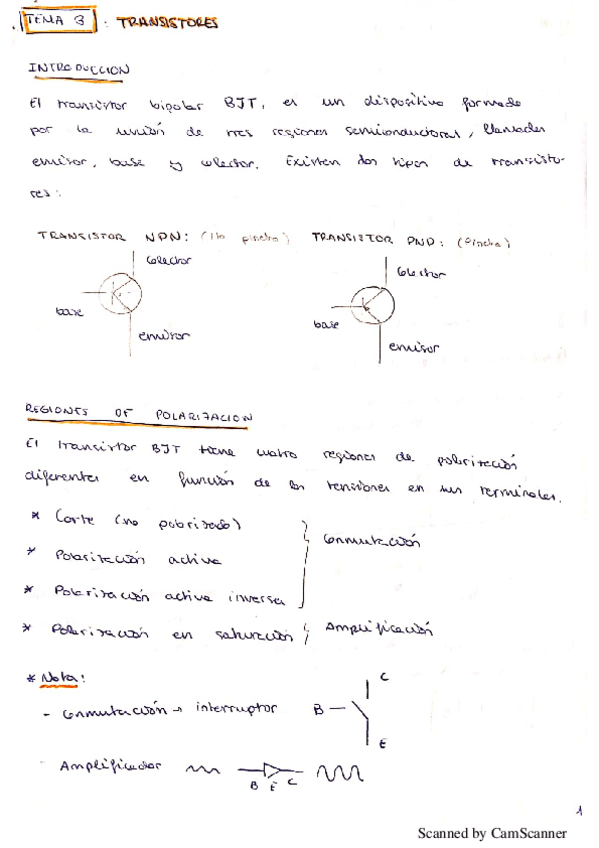 TEMA 3 : TRANSISTORES
INTRODUCCION
El transistor bipolar BJT, es un dispositivo formado
por la unión de tres regiones semiconductoras, llamadas
emisor, base y colector. Existen dos tipos de transisto-
res:
TRANSISTOR NPN: (No pincha) TRANSISTOR PNP: (Pincha)
colector
colector
base
base
emisor
emisor
REGIONES OF POLARIZACION
El transistor BJT tiene cuatro regiones de polarización
diferentes en función de las tensiones en sus terminales.
* Corte (no polarizado)
* Polarización activa
Conmutación
* Polarización activa inversa
* Polarización en saturación } Amplificación
* Nota:
- Conmutación → interruptor
C
B
E
- Amplificador
B E C
1
Scanned by CamScanner